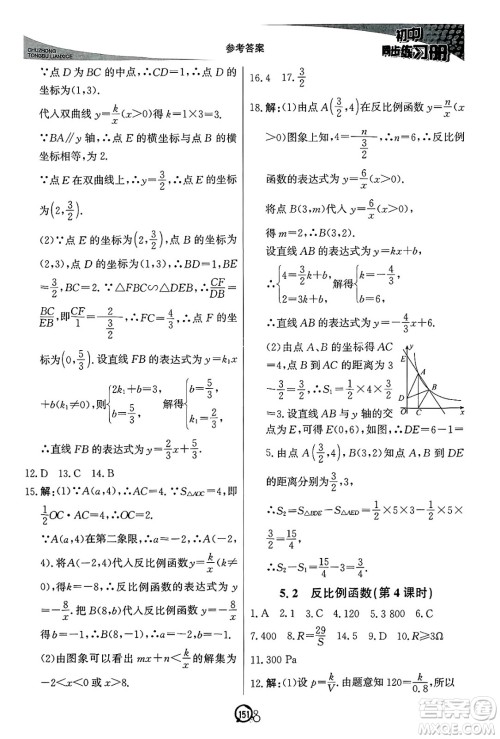 CHUZHONG
TONGBU LIANXICE
参考答案
初中
同步练习册
∵点 D 为 BC 的中点,∴点 D
的坐标为(1,3).
代入双曲线 y=k/x(x>0)得 k=1×3=3.
∵BA∥y 轴,∴点 E 的横坐标与点 B 的横
坐标相等,为 2.
∵点 E 在双曲线上,∴y=3/2,∴点 E 的坐标
为(2,3/2).
(2)∵点 E 的坐标为(2,3/2),点 B 的坐标为
(2,3),点 D 的坐标为(1,3),∴BD=1,BE
=3/2,BC=2. ∵△FBC∽△DEB,∴BD/CF=
BE/CB,即
∴FC=4/3,∴点 F 的坐
标为(0,5/3). 设直线 FB 的表达式为 y=k₁x
+b(k₁≠0),则{2k₁+b=3, b=5/3, 解得{k₁=2/3, b=5/3,
∴直线 FB 的表达式为 y=2/3x+5/3.
12.D 13.C 14.B
15.解:∵A(a,4),∴AC=4. ∵S△AOC=4,∴
1/2OC·AC=4,∴OC=2.
∵A(a,4)在第二象限,∴a=-2,∴A(-2,
4).将 A(-2,4)代入反比例函数 y=k/x得,k
=-8,∴反比例函数的表达式为 y=-8/x.
把 B(8,b)代入得,b=-1,∴B(8,-1),
∴由图象可以看出 mx+n<k/x的解集为-2
<x<0 或 x>8.
16.4 17.3/2
18.解:(1)由点 A(3/2,4)在反比例函数 y=n/x(x
>0)图象上,则 4=n/(3/2),∴n=6,∴反比例
函数的表达式为 y=6/x(x>0).
将点 B(3,m)代入 y=6/x(x>0)
得 m=2,∴B(3,2).
设直线 AB 的表达式为 y=kx+b,
∴{4=3/2k+b, 2=3k+b, 解得{k=-4/3, b=6,
∴直线 AB 的表达式为 y=-4/3x+6.
(2)由点 A、B 的坐标得 AC
=4,点 B 到 AC 的距离为 3-
3/2=3/2,∴S₁=1/2×4×3/2=
3. 由点 A(3/2,4),E(0,1)
y
A
B
E
O
C
x
得距离分别为
∴S₂=S△BED-S△AED=1/2×5×3-1/2×5×
3/2=15/4,∴S₂-S₁=3/4.
5.2 反比例函数(第 4 课时)
1.A 2.C 3.C 4.120 5.3 800 6.C
7.400 8.R=29/S 9.C 10.R≥3Ω
11.300 Pa
12.解:(1)设 p=k/V. 由题意知 120=k/0.8,所以
151